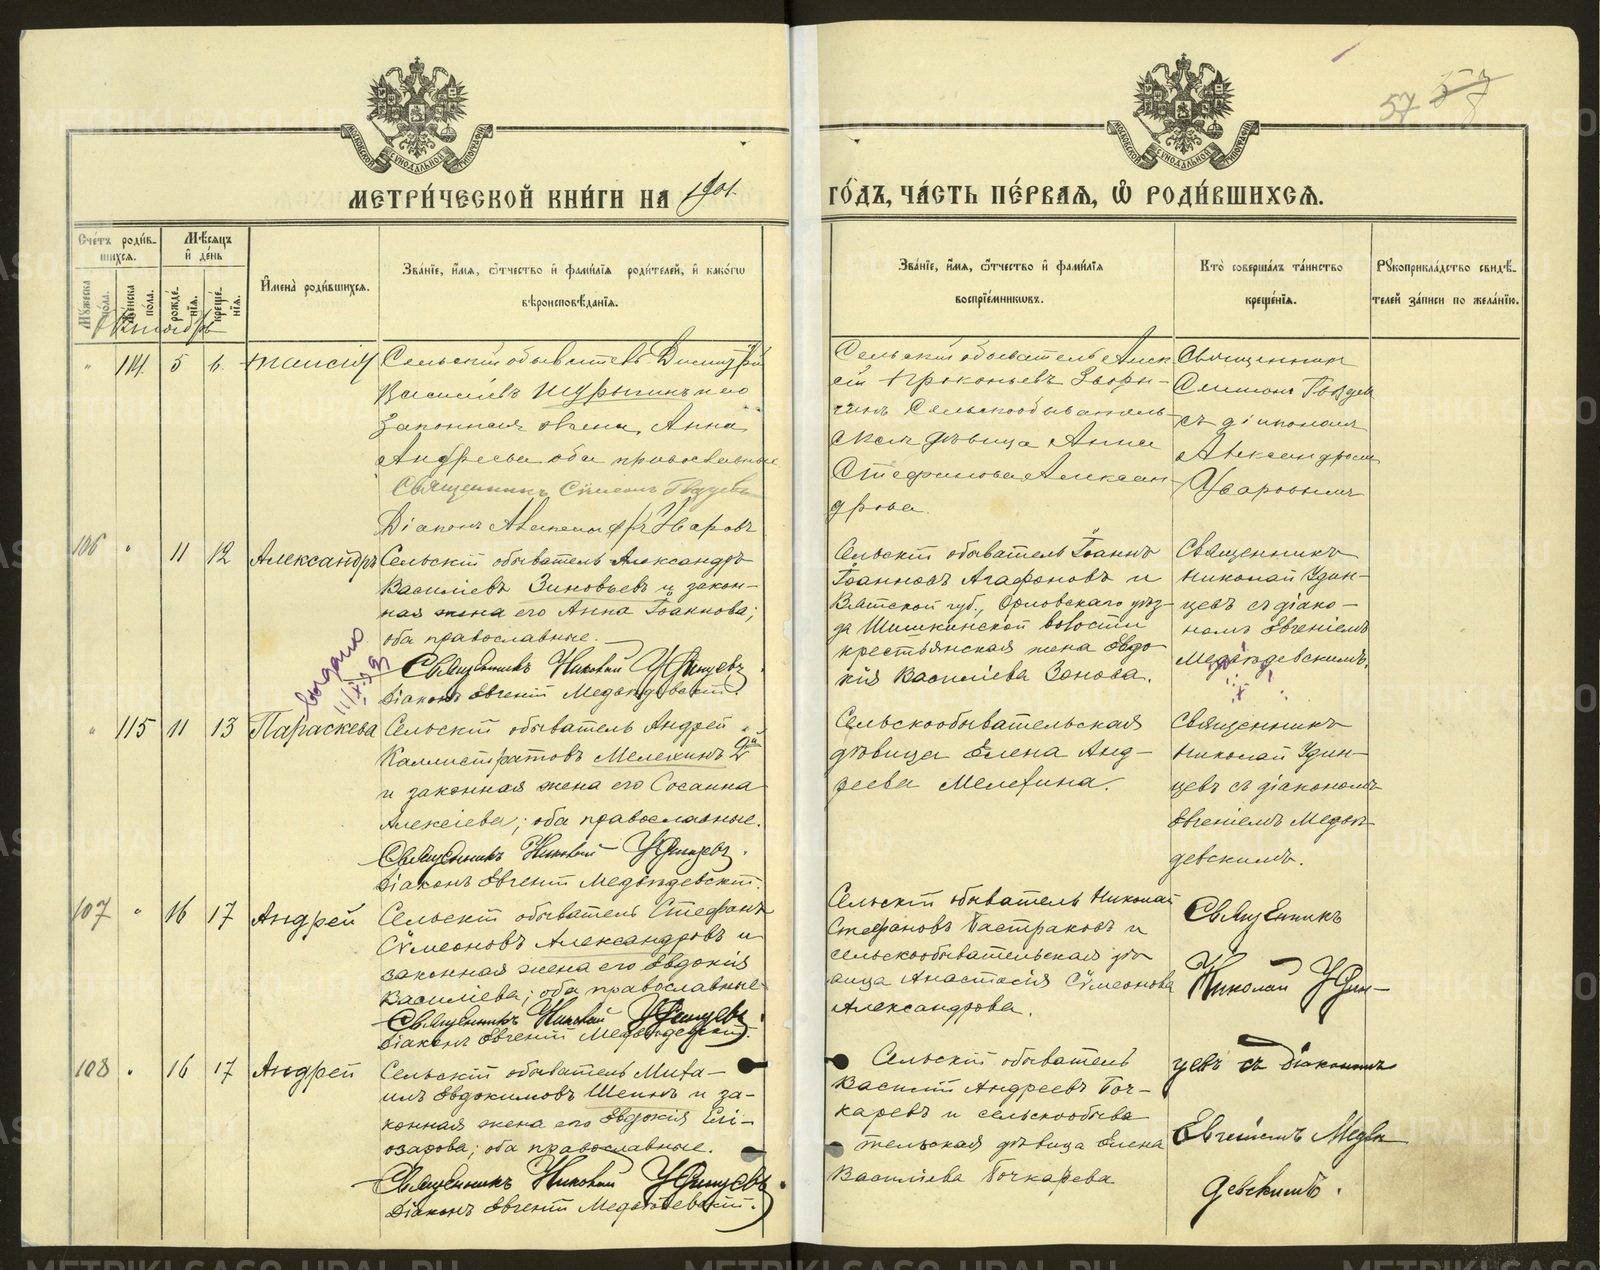 57
МЕТРИ́ЧЕСКОЙ КНИ́ГИ НА 1901.
ГО́ДЪ, ЧА́СТЬ ПЕ́РВАЯ, Ѽ РОДИ́ВШИХСЯ.
Сче́тъ роди́в-
шихся.
Мѣ́сяцъ
и҆ де́нь
Му́жеска по́ла.
Же́нска по́ла.
рожде́нїя.
креще́нїя.
И҆мена̀ роди́вшихся.
Зва́нїе, и҆́мя, ѻ҆́тчество и҆ фами́лїя роди́телей, и҆ како́гѡ
вѣроисповѣ́данїя.
Зва́нїе, и҆́мя, ѻ҆́тчество и҆ фами́лїя
воспрїе́мникѡвъ.
Кто̀ соверша́лъ та́инство
креще́нїя.
Рукоприкла́дство свидѣ́-
телей за́писи по жела́нїю.
Октябрь
" 114. 5 6. Таисія
Сельскій обыватель Димитрій
Василіевъ Шурыгинъ и его
Законная жена, Анна
Андреева оба православные
Священникъ Симеонъ
Діаконъ Александръ Уваровъ
Сельскій обыватель Алек
сій Прокопьевъ Звѣры-
гинъ Сельскообыватель-
ская дѣвица Анна
Стефанова Алексан-
дрова.
Священникъ
Симеонъ
съ діакономъ
Александромъ
Уваровымъ
106 " 11 12 Александръ
Сельскій обыватель Александръ
Василіевъ Зиновьевъ и закон-
ная жена его Анна Іоаннова;
оба православные.
Священникъ Николай Удинцевъ.
Діаконъ Евгеній Медвѣдевскій.
Сельскій обыватель Іоаннъ
Іоанновъ Агафоновъ и
Вятской губ., Орловскаго уѣз-
да Шишкинской волости
крестьянская жена Евдо-
кія Василіева Зонова.
Священникъ
Николай Удин-
цевъ съ діако-
номъ Евгеніемъ
Медвѣдевскимъ.
выдано
" 115 11 13 Параскева
Сельскій обыватель Андрей
Каллистратовъ Мелехинъ 2й
и законная жена его Сосанна
Алексіева; оба православные.
Священникъ Николай Удинцевъ.
Діаконъ Евгеній Медвѣдевскій.
Сельскообывательская
дѣвица Елена Анд-
реева Мелехина.
Священникъ
Николай Удин-
цевъ съ діакономъ
Евгеніемъ Медвѣ-
девскимъ.
107 " 16 17 Андрей
Сельскій обыватель Стефанъ
Сѵмеоновъ Александровъ и
законная жена его Евдокія
Василіева; оба православные.
Священникъ Николай Удинцевъ.
Діаконъ Евгеній Медвѣдевскій.
Сельскій обыватель Николай
Стефановъ Пастраковъ и
сельскообывательская дѣ
вица Анастасія Сѵмеонова
Александрова.
Священникъ
Николай Удин-
108 " 16 17 Андрей
Сельскій обыватель Миха-
илъ Евдокимовъ Шеинъ и за-
конная жена его Евдокія Елі-
озарова; оба православные.
Священникъ Николай Удинцевъ.
Діаконъ Евгеній Медвѣдевскій.
Сельскій обыватель
Василій Андреевъ Боч-
каревъ и сельскообыва
тельская дѣвица Елена
Василіева Бочкарева
цевъ съ діакономъ
Евгеніемъ Медвѣ
девскимъ.